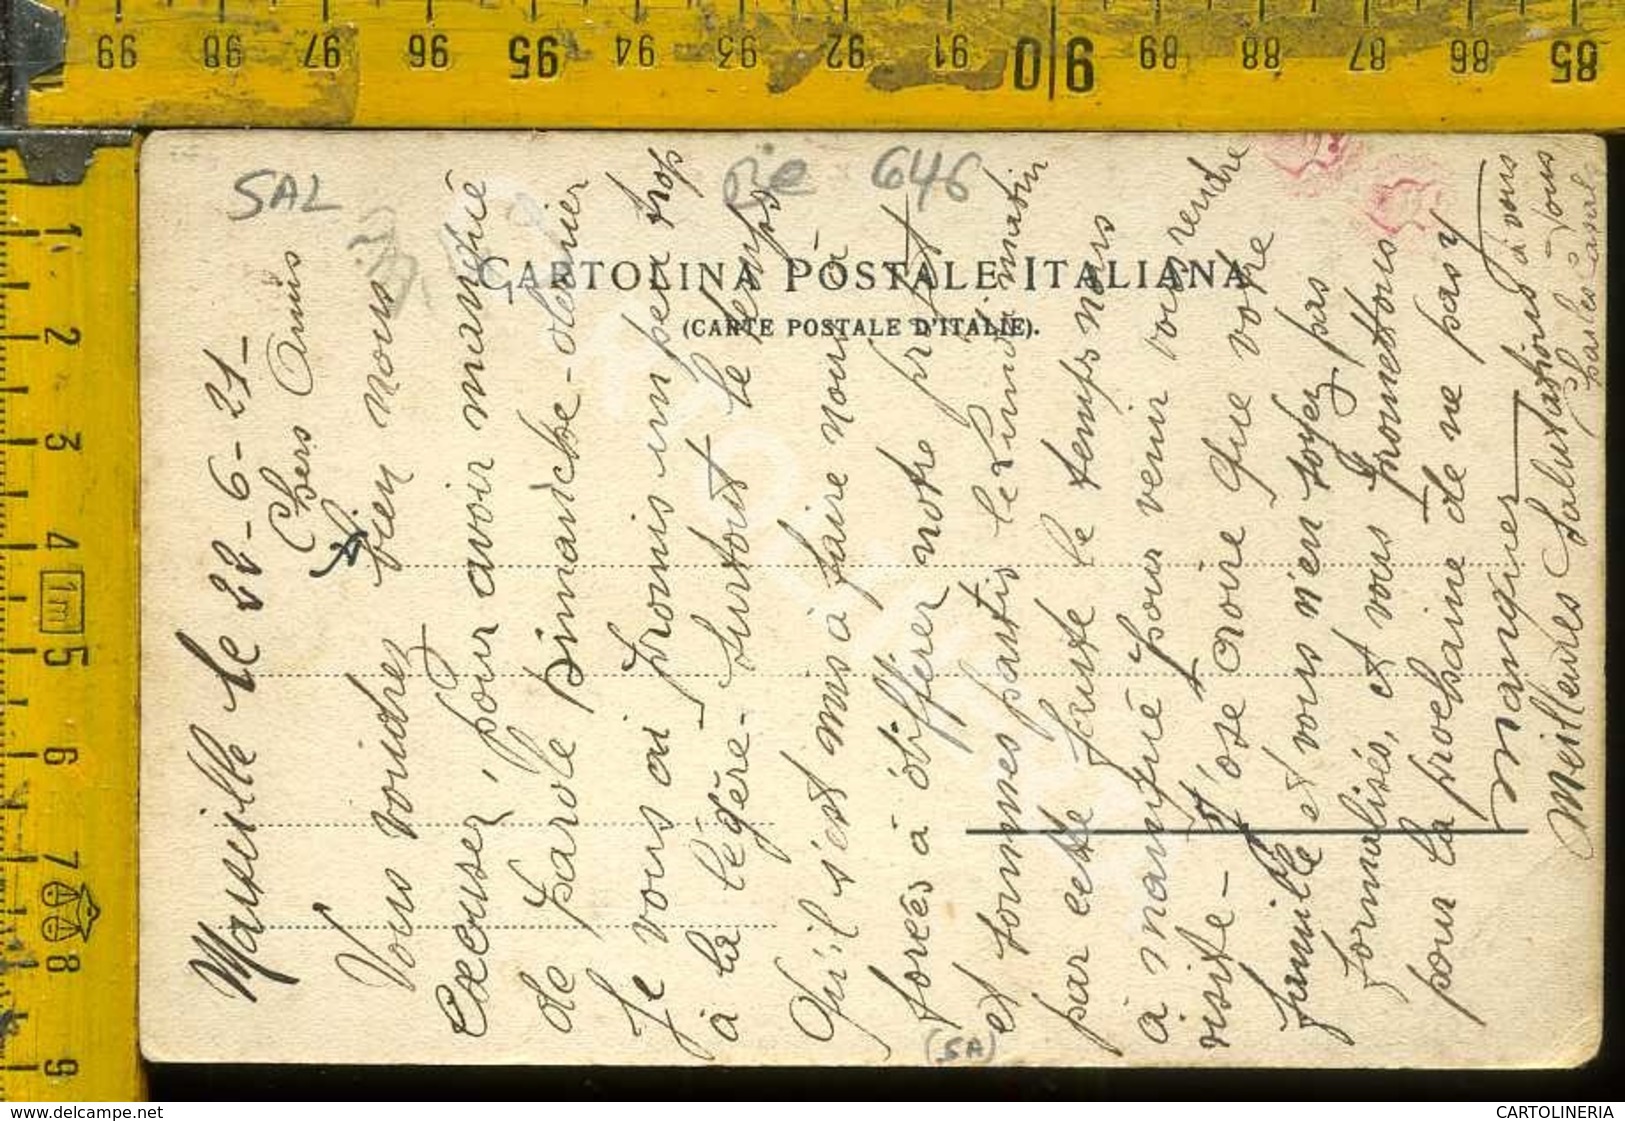 Marseille le 22-6-21-
Chers Amis
Vous voudrez bien nous
excuser, pour avoir manqué
de parole Dimanche-dernier
Je vous ai promis un peu trop
à la légère. Surtout le temps
qu'il s'est mis à faire nous a
forcés à différer notre
et sommes partis le Lundi matin
par cette faute le temps nous
à manqué pour venir vous rendre
visite - J'ose croire que votre
famille et vous n'en soyez pas
formalisés, et vous promettons
pour la prochaine de ne pas y
manquer
Meilleures Salutations à vous
tous
CARTOLINA POSTALE ITALIANA
(CARTE POSTALE D'ITALIE).
SAL
646
(SA)
99 98 97 96 95 94 93 92 91 90 89 88 87 86 85
1
2
3
4
1m
5
6
7
8
9
www.delcampe.net
CARTOLINERIA